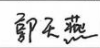 郭天燕